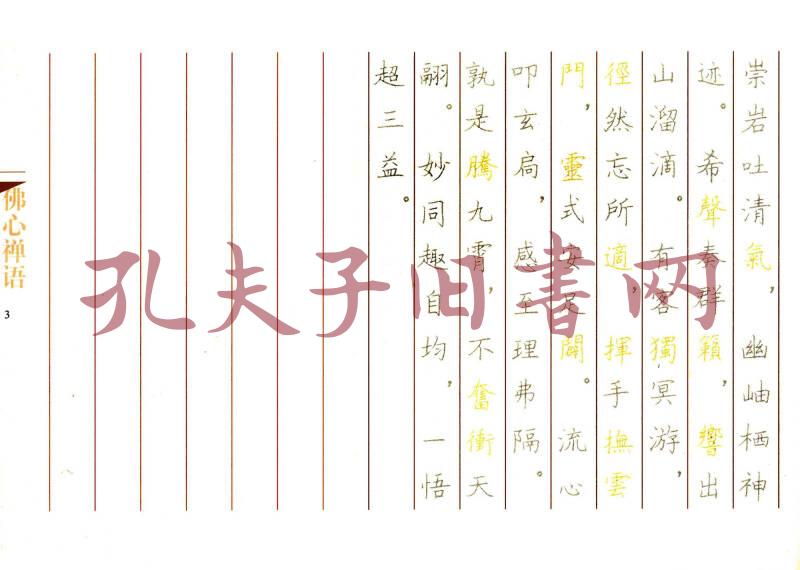 崇岩吐清氣，幽岫栖神
迹。希聲奏群籟，響出
山溜滴。有客獨冥游，
徑然忘所適，揮手撫雲
門，靈式安足闢。流心
叩玄扃，感至理弗隔。
孰是騰九霄，不奮衝天
翮。妙同趣自均，一悟
超三益。
佛心禅语
3
孔夫子旧书网